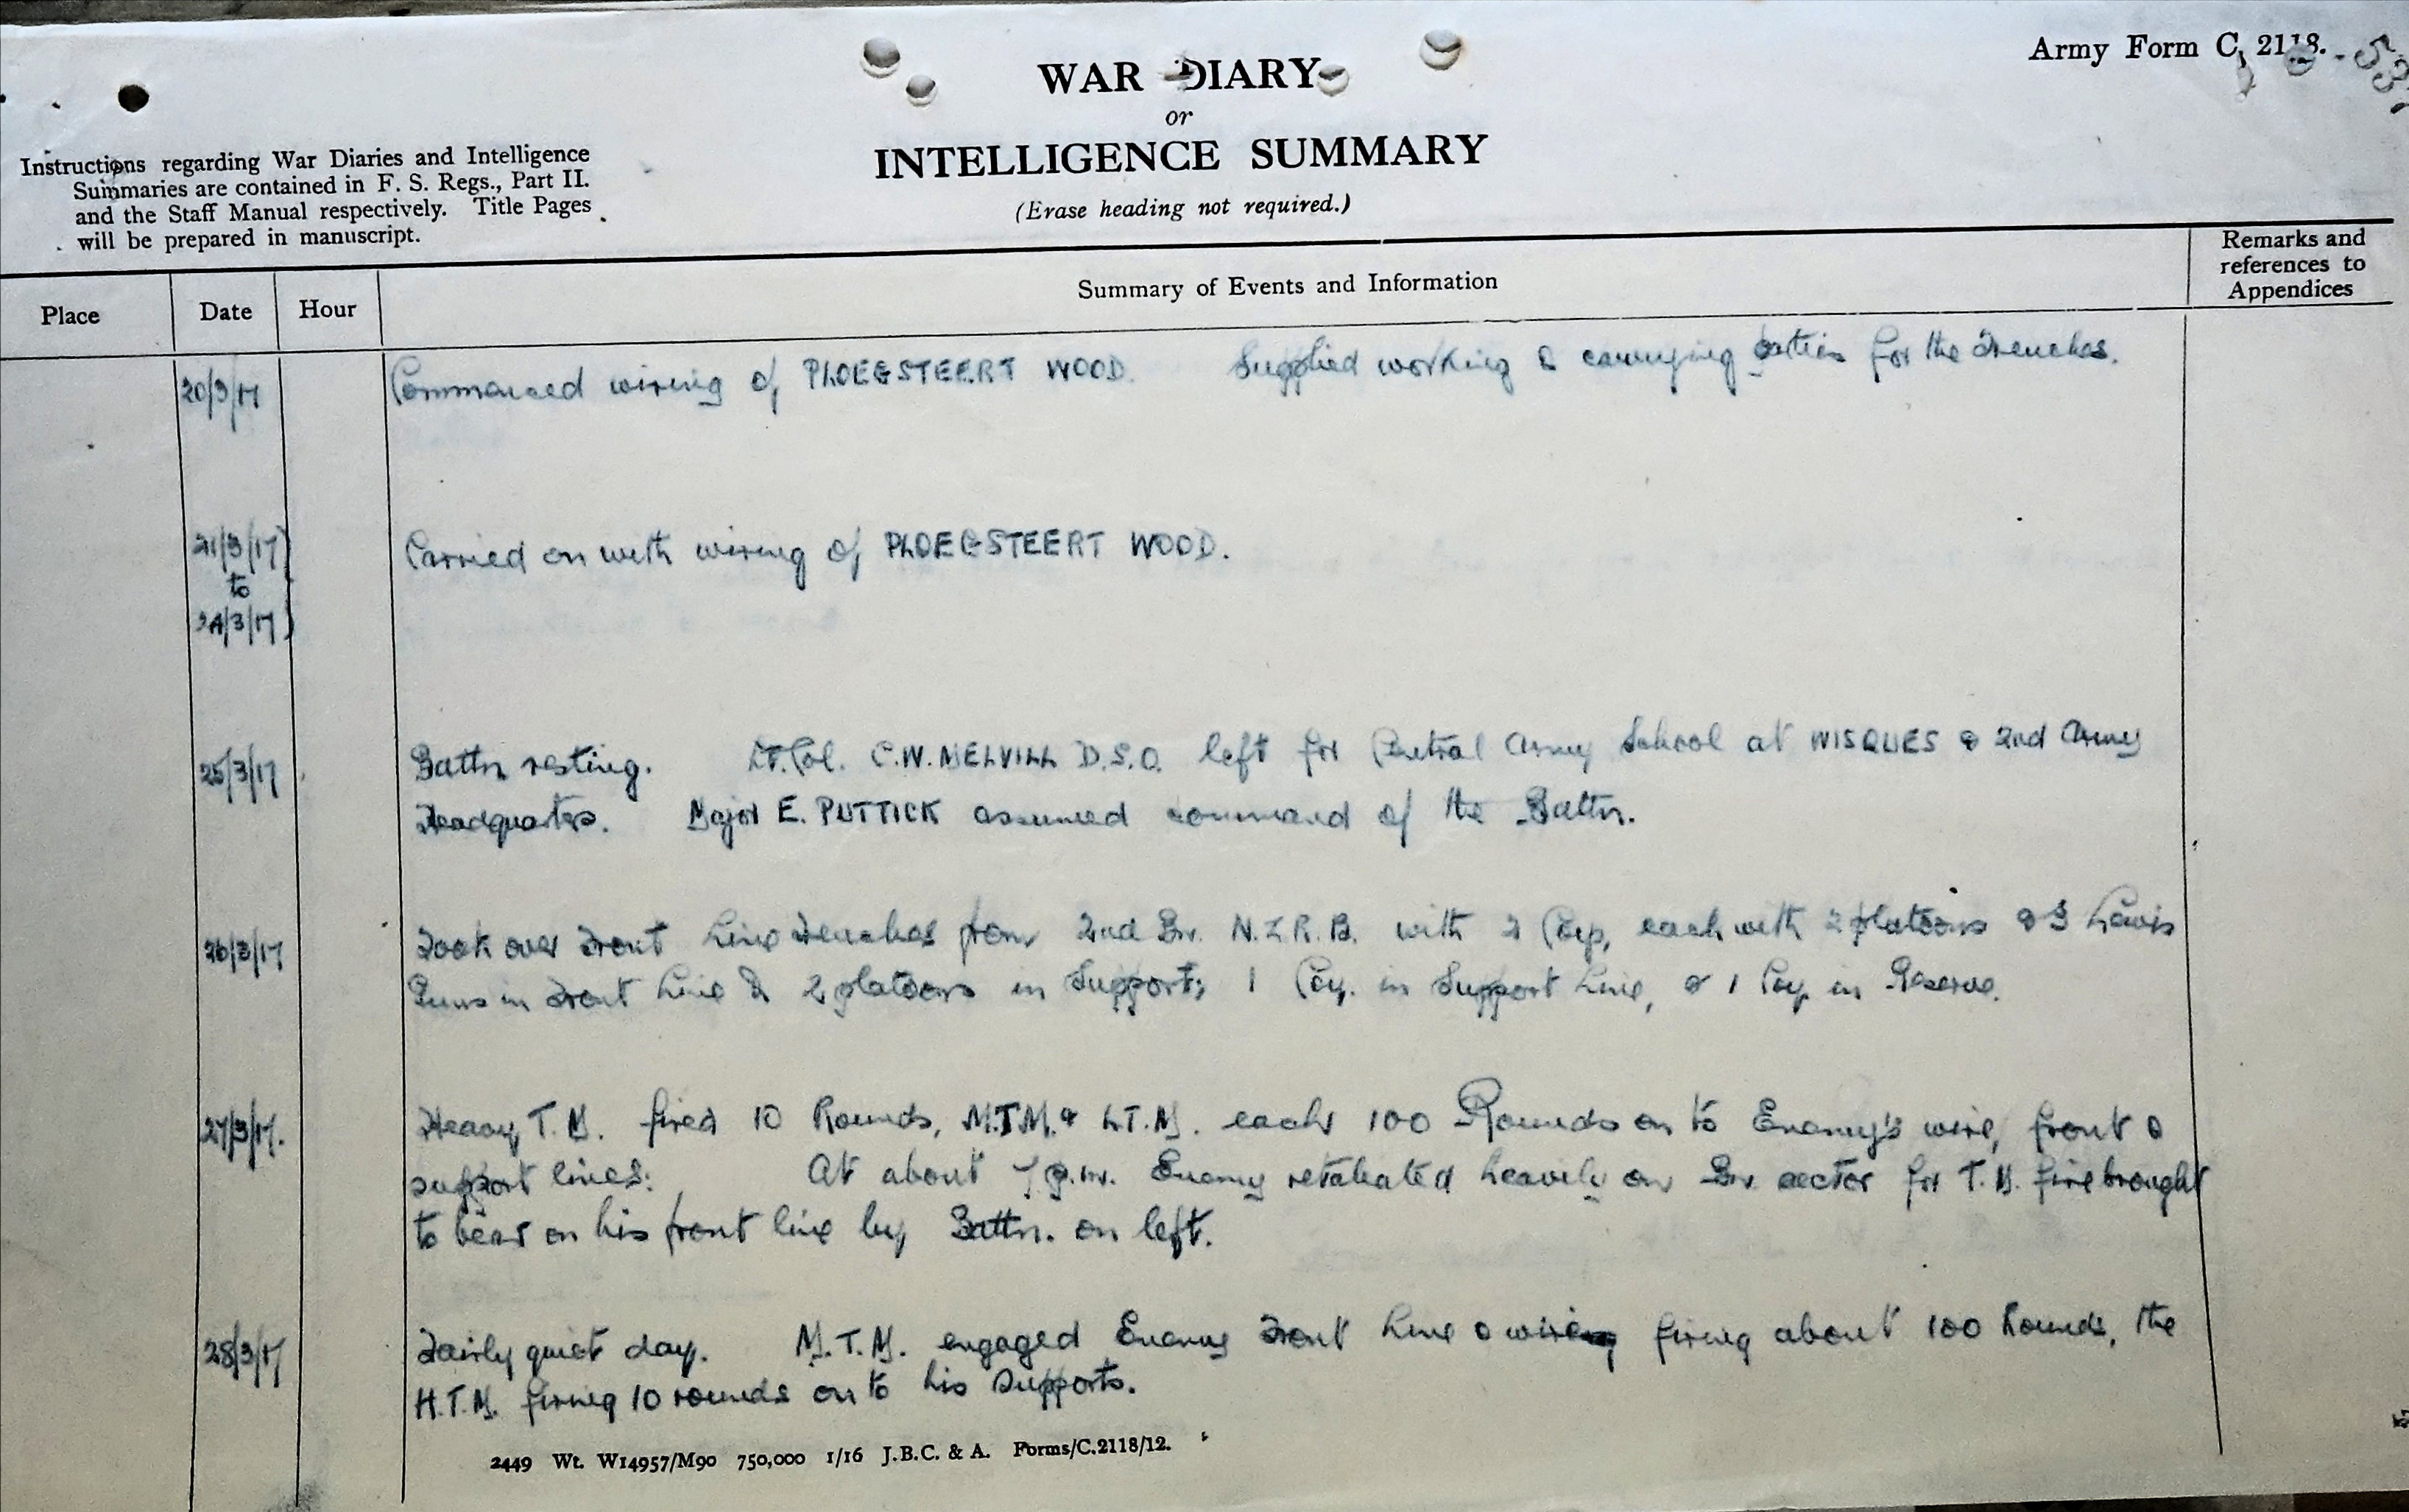 Army Form C. 2118.
WAR DIARY
or
INTELLIGENCE SUMMARY
(Erase heading not required.)
Instructions regarding War Diaries and Intelligence
Summaries are contained in F. S. Regs., Part II.
and the Staff Manual respectively. Title Pages
will be prepared in manuscript.
Place Date Hour Summary of Events and Information Remarks and references to Appendices
20/3/17 Commenced wiring of PLOEGSTEERT WOOD. Supplied working & carrying parties for the Trenches.
21/3/17) Carried on with wiring of PLOEGSTEERT WOOD.
to
24/3/17)
25/3/17 Battn resting. Lt. Col. C.W. MELVILL D.S.O. left for Central Army School at WISQUES & 2nd Army
Headquarters. Major E. PUTTICK assumed command of the Battn.
26/3/17 Took over Front Line Trenches from 2nd Bn. N.Z.R.B. with 2 Coys, each with 2 platoons & 3 Lewis
Guns in Front Line & 2 platoons in Support; 1 Coy. in Support Line, & 1 Coy in Reserve.
27/3/17. Heavy T.M. fired 10 Rounds, M.T.M. & L.T.M. each 100 Rounds on to Enemy's wire, front &
support lines. At about 7 p.m. Enemy retaliated heavily on Bn sector for T.M. fire brought
to bear on his front line by Battn. on left.
28/3/17 Fairly quiet day. M.T.M. engaged Enemy Front Line & wire firing about 100 Rounds, the
H.T.M. firing 10 rounds on to his supports.
2449 Wt. W14957/M90 750,000 1/16 J.B.C. & A. Forms/C.2118/12.